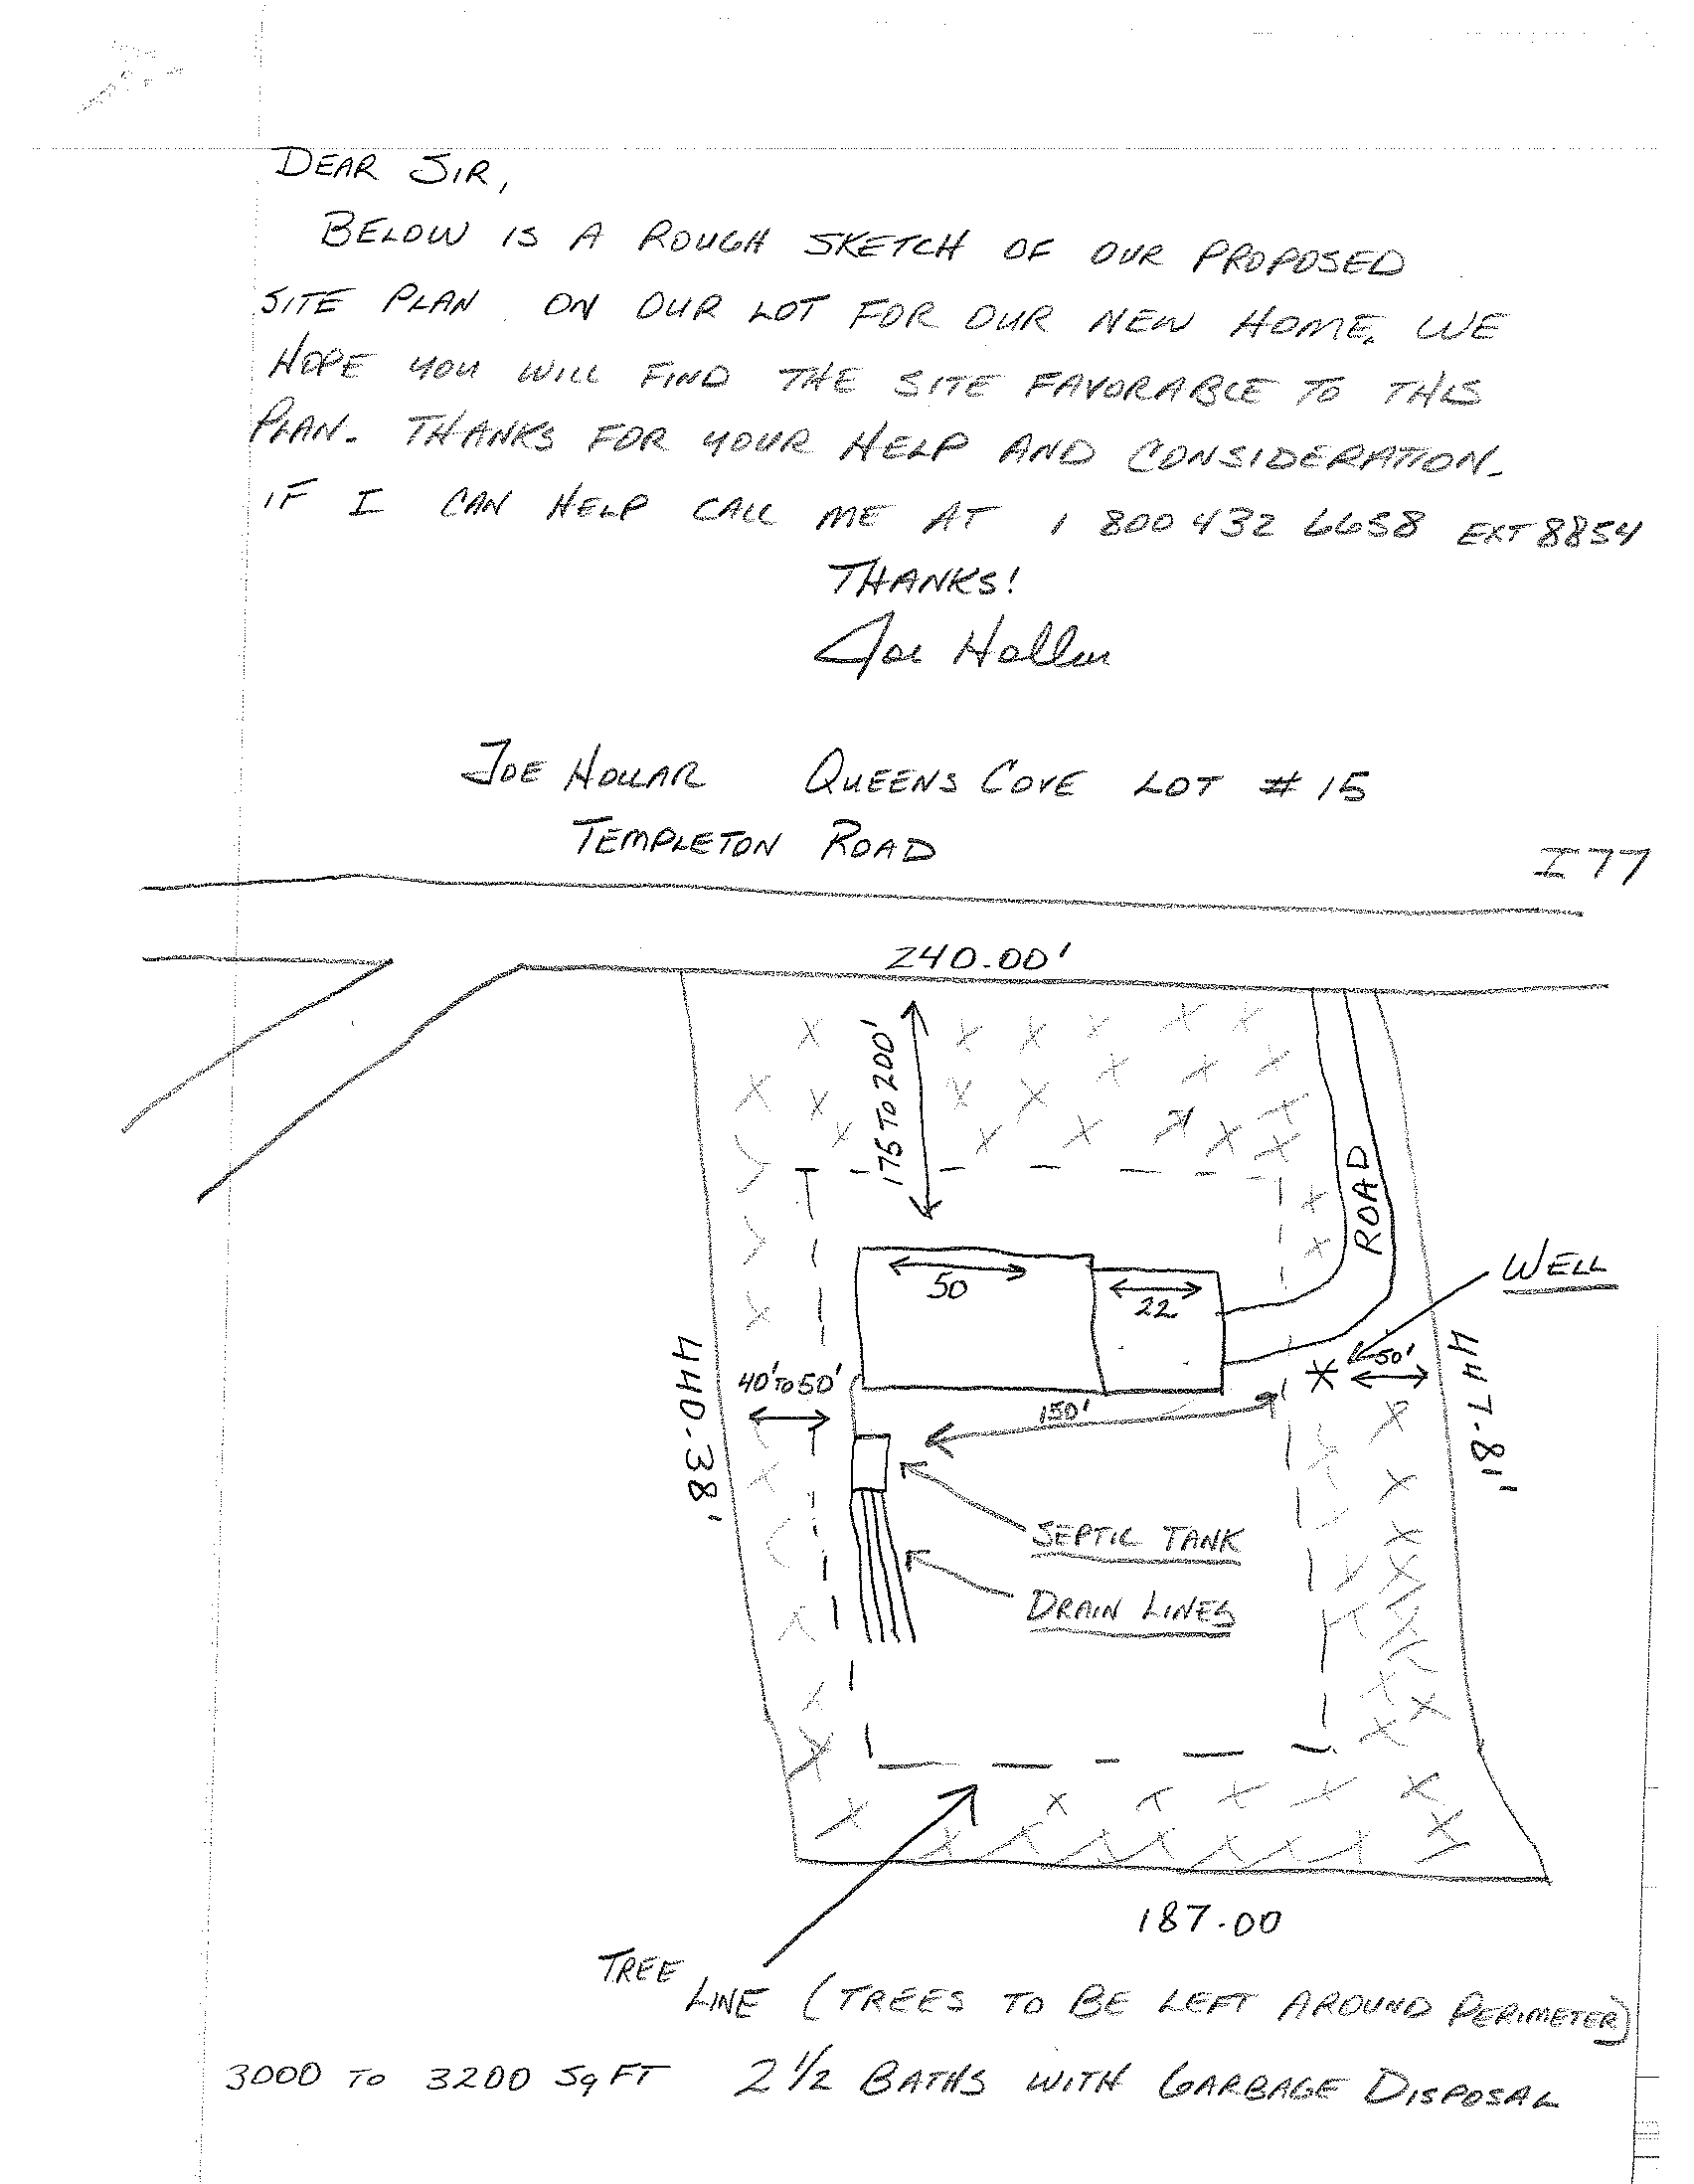 DEAR SIR,
BELOW IS A ROUGH SKETCH OF OUR PROPOSED
SITE PLAN ON OUR LOT FOR OUR NEW HOME. WE
HOPE YOU WILL FIND THE SITE FAVORABLE TO THIS
PLAN. THANKS FOR YOUR HELP AND CONSIDERATION.
IF I CAN HELP CALL ME AT 1 800 432 6658 EXT 8854
THANKS!
Joe Hollar
JOE HOLLAR QUEENS COVE LOT # 15
TEMPLETON ROAD
I 77
240.00'
175 TO 200'
ROAD
WELL
50
22
40' TO 50'
50'
150'
440.38'
447.81'
SEPTIC TANK
DRAIN LINES
187.00
TREE
LINE (TREES TO BE LEFT AROUND PERIMETER)
3000 TO 3200 Sq FT 2 1/2 BATHS WITH GARBAGE DISPOSAL